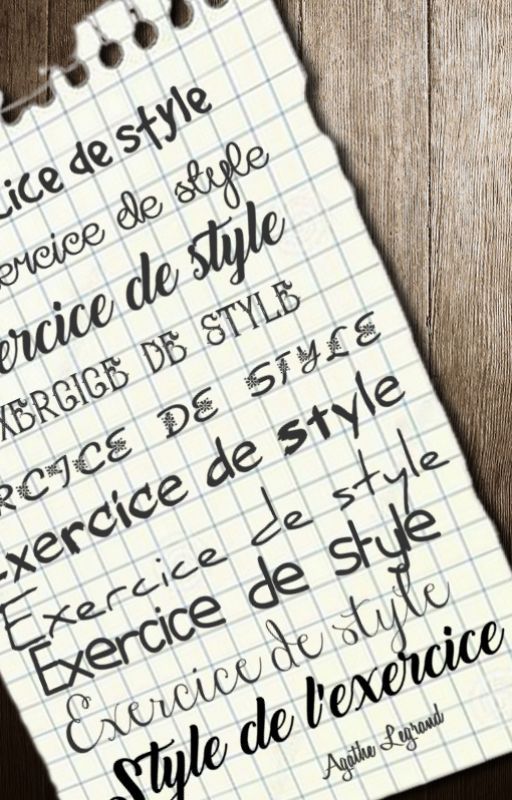 cice de style
ercice de style
ercice de style
XERCICE DE STYLE
RCICE DE STYLE
Exercice de style
Exercice de style
Exercice de style
Exercice de style
Style de l'exercice
Agathe Legrand